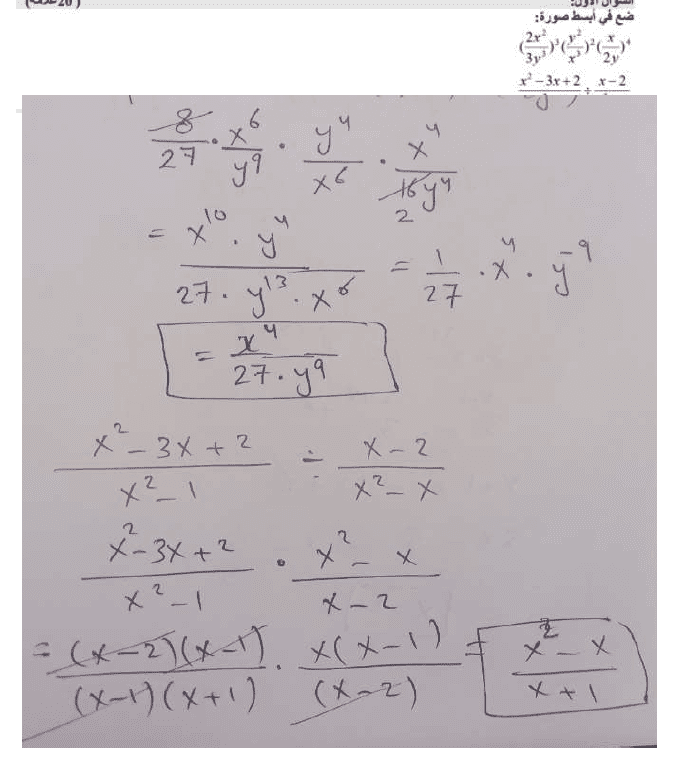 ضع في أبسط صورة:
(2x²/3y³)³(y²/x³)²(x/2y)⁴
x² – 3x + 2 ÷ x – 2
8/27 · x⁶/y⁹ · y⁴/x⁶ · x⁴/16y⁴ 2
= x¹⁰ · y⁴ / 27 · y¹³ · x⁶ = 1/27 · x⁴ · y⁻⁹
= x⁴ / 27 · y⁹
x² – 3x + 2 / x² – 1 ÷ x – 2 / x² – x
x² – 3x + 2 / x² – 1 · x² – x / x – 2
= (x – 2)(x – 1) / (x – 1)(x + 1) · x(x – 1) / (x – 2) = x² – x / x + 1